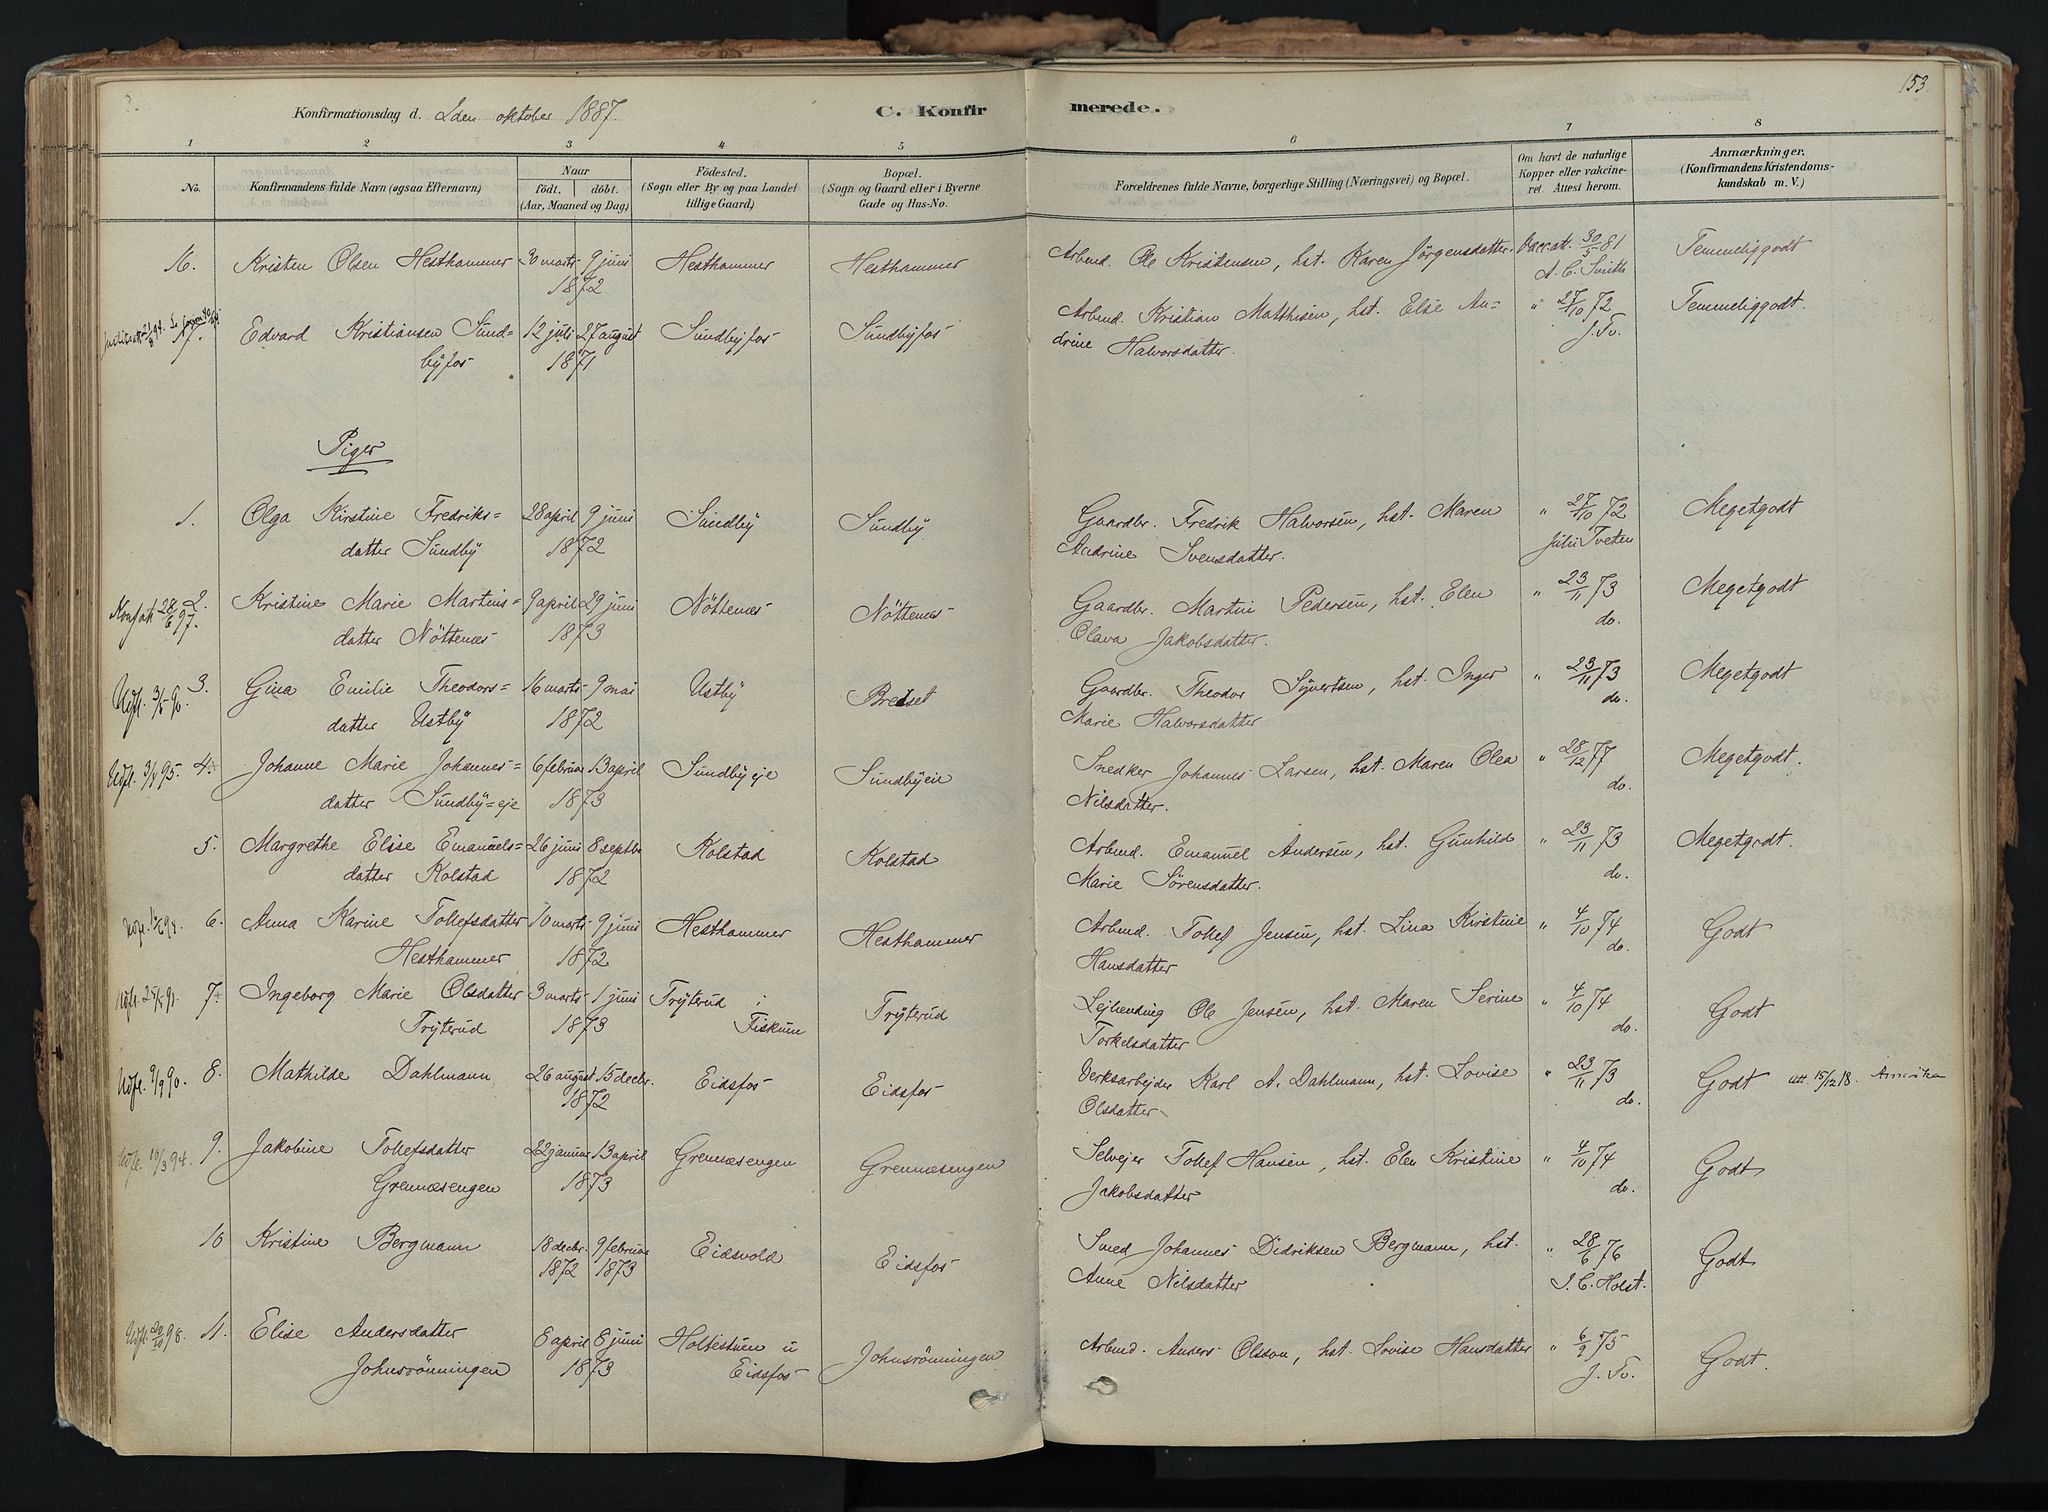 153.
Konfirmationsdag d. 2den oktober 1887
C. Konfirmerede.
1 2 3 4 5 6 7 8
No.
Konfirmandens fulde Navn (ogsaa Efternavn)
Naar
födt. döbt.
(Aar, Maaned og Dag)
Födested.
(Sogn eller By og paa Landet
tillige Gaard)
Bopæl.
(Sogn og Gaard eller i Byerne
Gade og Hus-No.
Forældrenes fulde Navne, borgerlige Stilling (Næringsvei) og Bopæl.
Om havt de naturlige
Kopper eller vakcine-
ret Attest herom.
Anmærkninger.
(Konfirmandens Kristendoms-
kundskab m. V.)
16. Kristen Olsen Hesthammer 30 marts 9 juni Hesthammer Hesthammer Arbmd. Ole Kristensen, hst. Karen Jörgensdatter. Vacc. att. 30/5 81 Temmeliggodt
1872 A. C. Smith
17. Edvard Kristiansen Sund= 12 juli 27 august Sundbyfos Sundbyfos Arbmd. Kristian Matthisen, hst. Else An= " 27/10 72 Temmeliggodt.
byfos 1871 drine Halvorsdatter. J. Tv.
Piger
1. Olga Kirstine Fredriks= 28 april 9 juni Sundby Sundby Gaardbr. Fredrik Halvorsen, hst. Maren " 27/10 72 Megetgodt
datter Sundby 1872 Andrine Svensdatter. Juliu Tveten
Konfatt. 28/6 97. 2. Kristine Marie Martins= 9 april 29 juni Nöttenes Nöttenes Gaardbr. Martin Pedersen, hst. Elen " 23/11 73 Megetgodt
datter Nöttenes 1873 Olava Jakobsdatter. do.
Udfl. 3/5 90. 3. Gina Emilie Theodors= 16 marts 9 mai Ustby Bredset Gaardbr. Theodor Syvertsen, hst. Inger " 23/11 73 Megetgodt
datter Ustby 1872 Marie Halvorsdatter do.
Udfl. 95. 4. Johanne Marie Johannes= 6 februar 13 april Sundbyeje Sundbyeie Snedker Johannes Larsen, hst. Maren Olea " 28/12 77 Megetgodt.
datter Sundby=eje 1873 Nilsdatter. do.
5. Margrethe Elise Emanuels= 26 juni 8 septbr Kolstad Kolstad Arbmd. Emanuel Andersen, hst. Gunhild " 23/11 73 Megetgodt.
datter Kolstad 1872 Marie Sörensdatter. do.
94. 6. Anna Karine Tollefsdatter 10 marts 9 juni Hesthammer Hesthammer Arbmd. Tollef Jensen, hst. Lina Kirstine " 4/10 74 Godt
Hesthammer 1872 Hansdatter do.
Udfl. 7. Ingeborg Marie Olsdatter 3 marts 1 juni Tryterud i Tryterud Lejlending Ole Jensen, hst. Maren Serine " 4/10 74 Godt
Tryterud 1873 Fiskum Torkelsdatter do.
Udfl. 9/9 90. 8. Mathilde Dahlmann 26 august 15 decbr. Eidsfos Eidsfos Verksarbejder Karl A. Dahlmann, hst. Lovise " 23/11 73 Godt att. 15/12 18. Amerika
1872 Olsdatter do.
Udfl. 10/3 94. 9. Jakobine Tollefsdatter 22 januar 13 april Grennæsengen Grennæsengen Selvejer Tollef Hansen, hst. Elen Kristine " 4/10 74 Godt
Grennæsengen 1873 Jakobsdatter do.
10 Kristine Bergmann 18 decbr. 9 februar Eidsvold Eidsfos Smed Johannes Didriksen Bergmann, hst. " 28/6 76 Godt
1872 1873 Anne Nilsdatter J. C. Holst.
Udfl. 20/10 98. 11. Elise Andersdatter 8 april 8 juni Holtestuen u Johnsrönningen Arbmd. Anders Olsson, hst. Lovise Hansdatter " 6/9 75 Godt.
Johnsrönningen 1873 Eidsfos J. Tv.